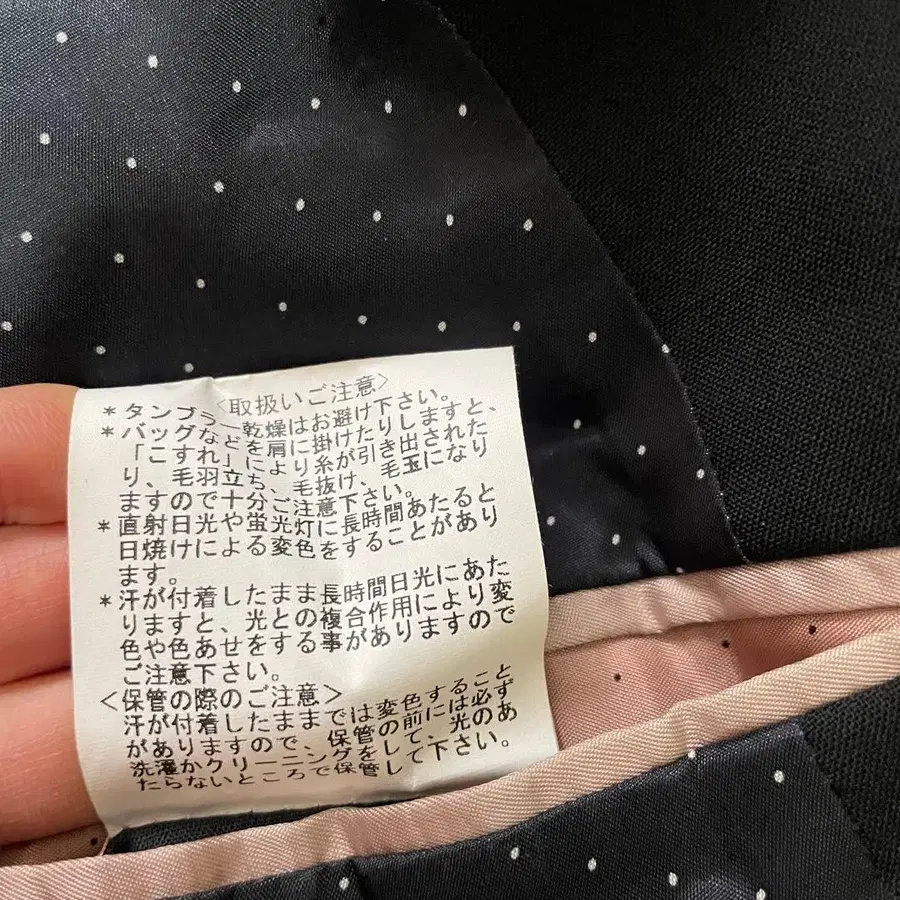 〈取扱いご注意〉
＊タンブラー乾燥はお避け下さい。
＊バッグなどを肩に掛けたりしますと、
「こすれ」により糸が引き出された
り、毛羽立ち、毛抜け、毛玉になり
ますので十分ご注意下さい。
＊直射日光や蛍光灯に長時間あたると
日焼けによる変色をすることがあり
ます。
＊汗が付着したまま長時間日光にあた
りますと、光との複合作用により変
色や色あせをする事がありますので
ご注意下さい。
〈保管の際のご注意〉
汗が付着したままでは変色すること
がありますので、保管の前には必ず
洗濯かクリーニングをして、光のあ
たらないところで保管して下さい。